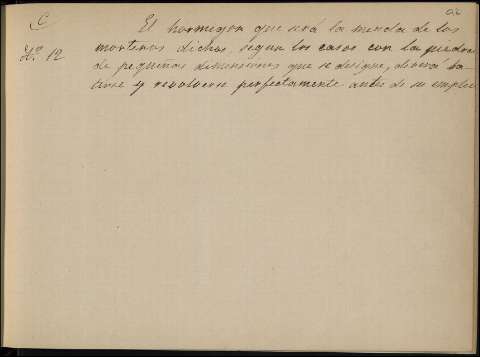 C
El hormigon que será la mezcla de los
Hº 12
morteros dichos, segun los casos con la piedra
de pequeñas dimensiones que se designe, deverá ba-
tirse y revolverse perfectamente antes de su empleo